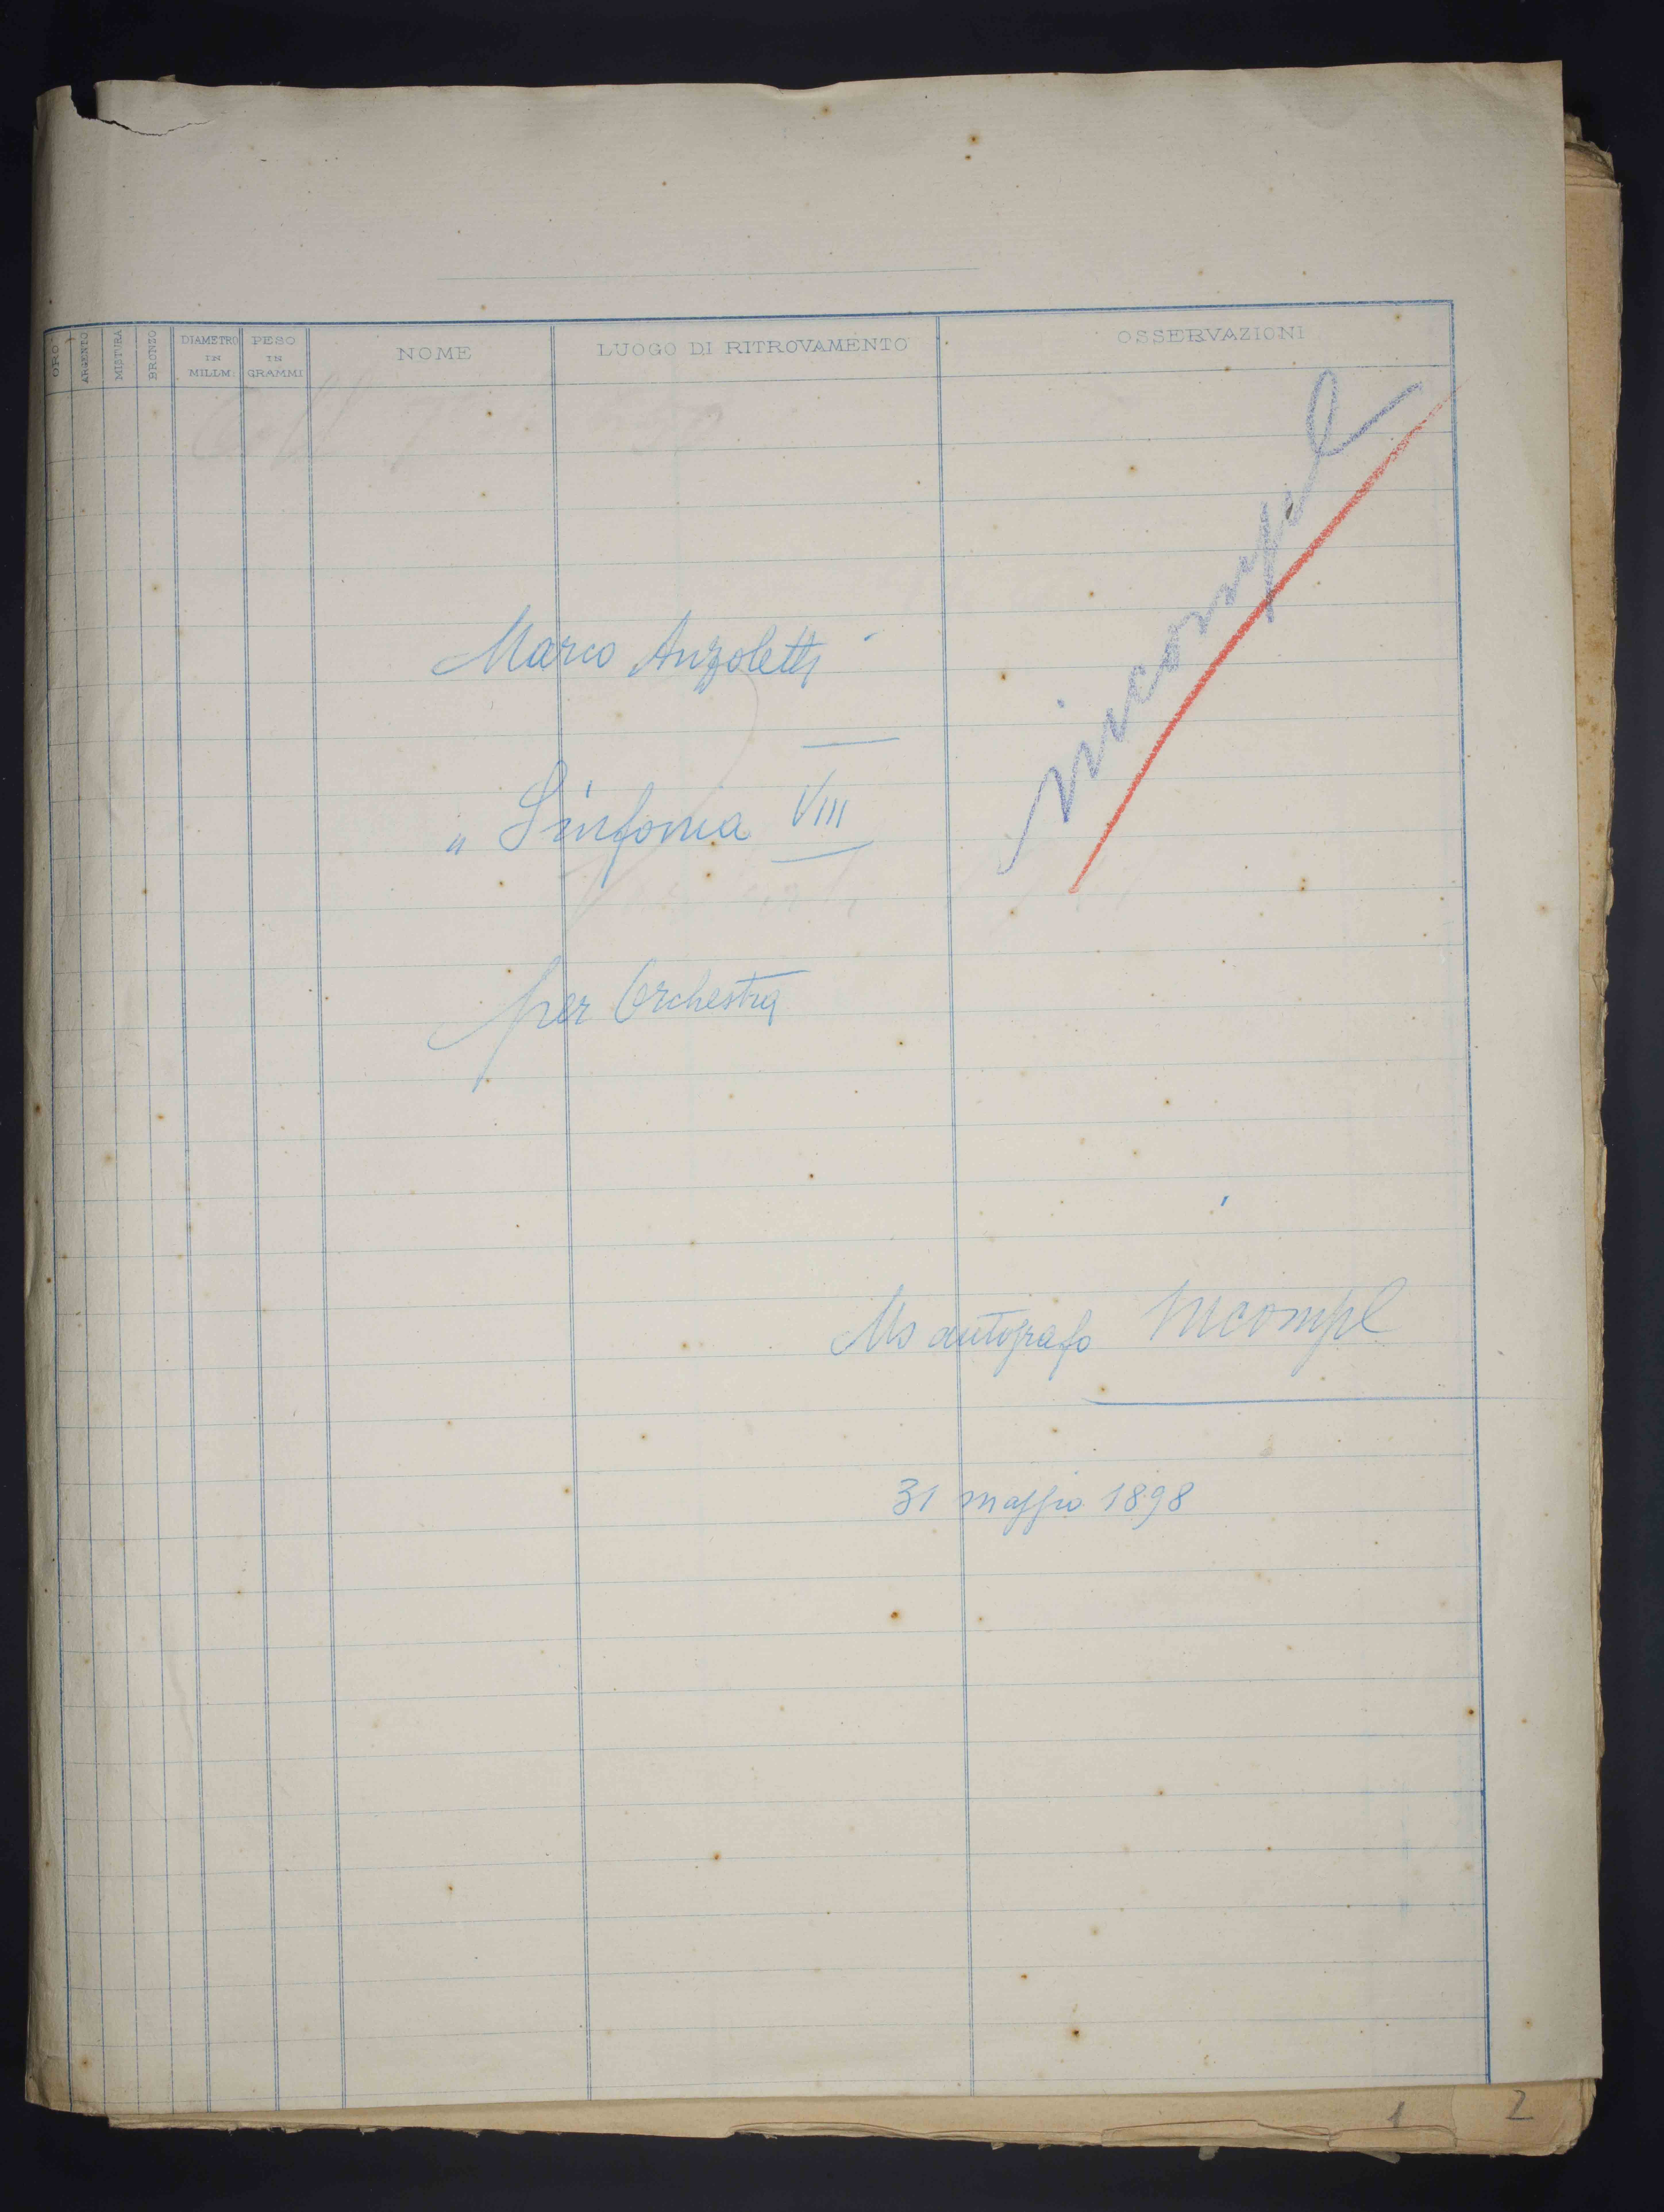 ORO
ARGENTO
MISTURA
BRONZO
DIAMETRO
IN
MILLM.
PESO
IN
GRAMMI
NOME
LUOGO DI RITROVAMENTO
OSSERVAZIONI
incompl
Marco Anzoletti
„ Sinfonia VIII
per Orchestra
Ms autografo Incompl
31 maggio 1898
1 2